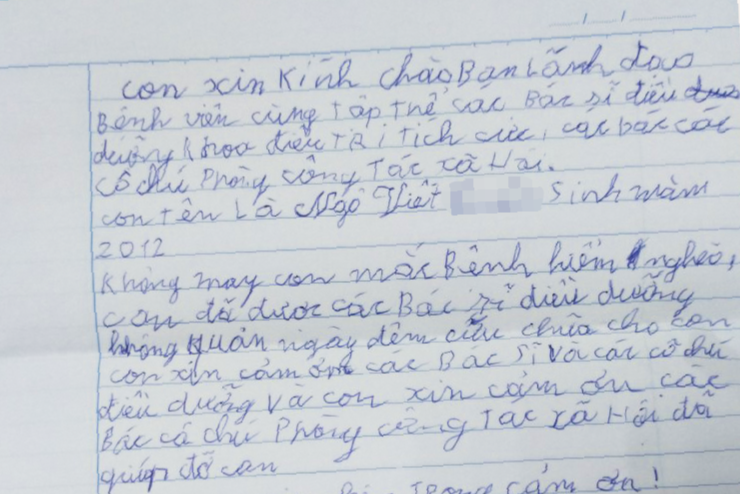 con xin Kính chào Ban Lãnh đạo
Bệnh viên cùng Tập Thể các Bác sĩ điều
dưỡng Khoa điều TRị Tích cực, các bác các
cô chú Phòng công Tác xã Hội.
con Tên Là Ngô Việt Sinh năm
2012
Không may con mắc Bệnh hiểm nghèo,
con đã được các Bác sĩ điều dưỡng
không quản ngày đêm cứu chữa cho con
con xin cảm ơn các Bác sĩ và các cô chú
điều dưỡng và con xin cảm ơn các
Bác cô chú Phòng công Tác xã Hội đã
giúp đỡ con
Trọng cảm ơn!